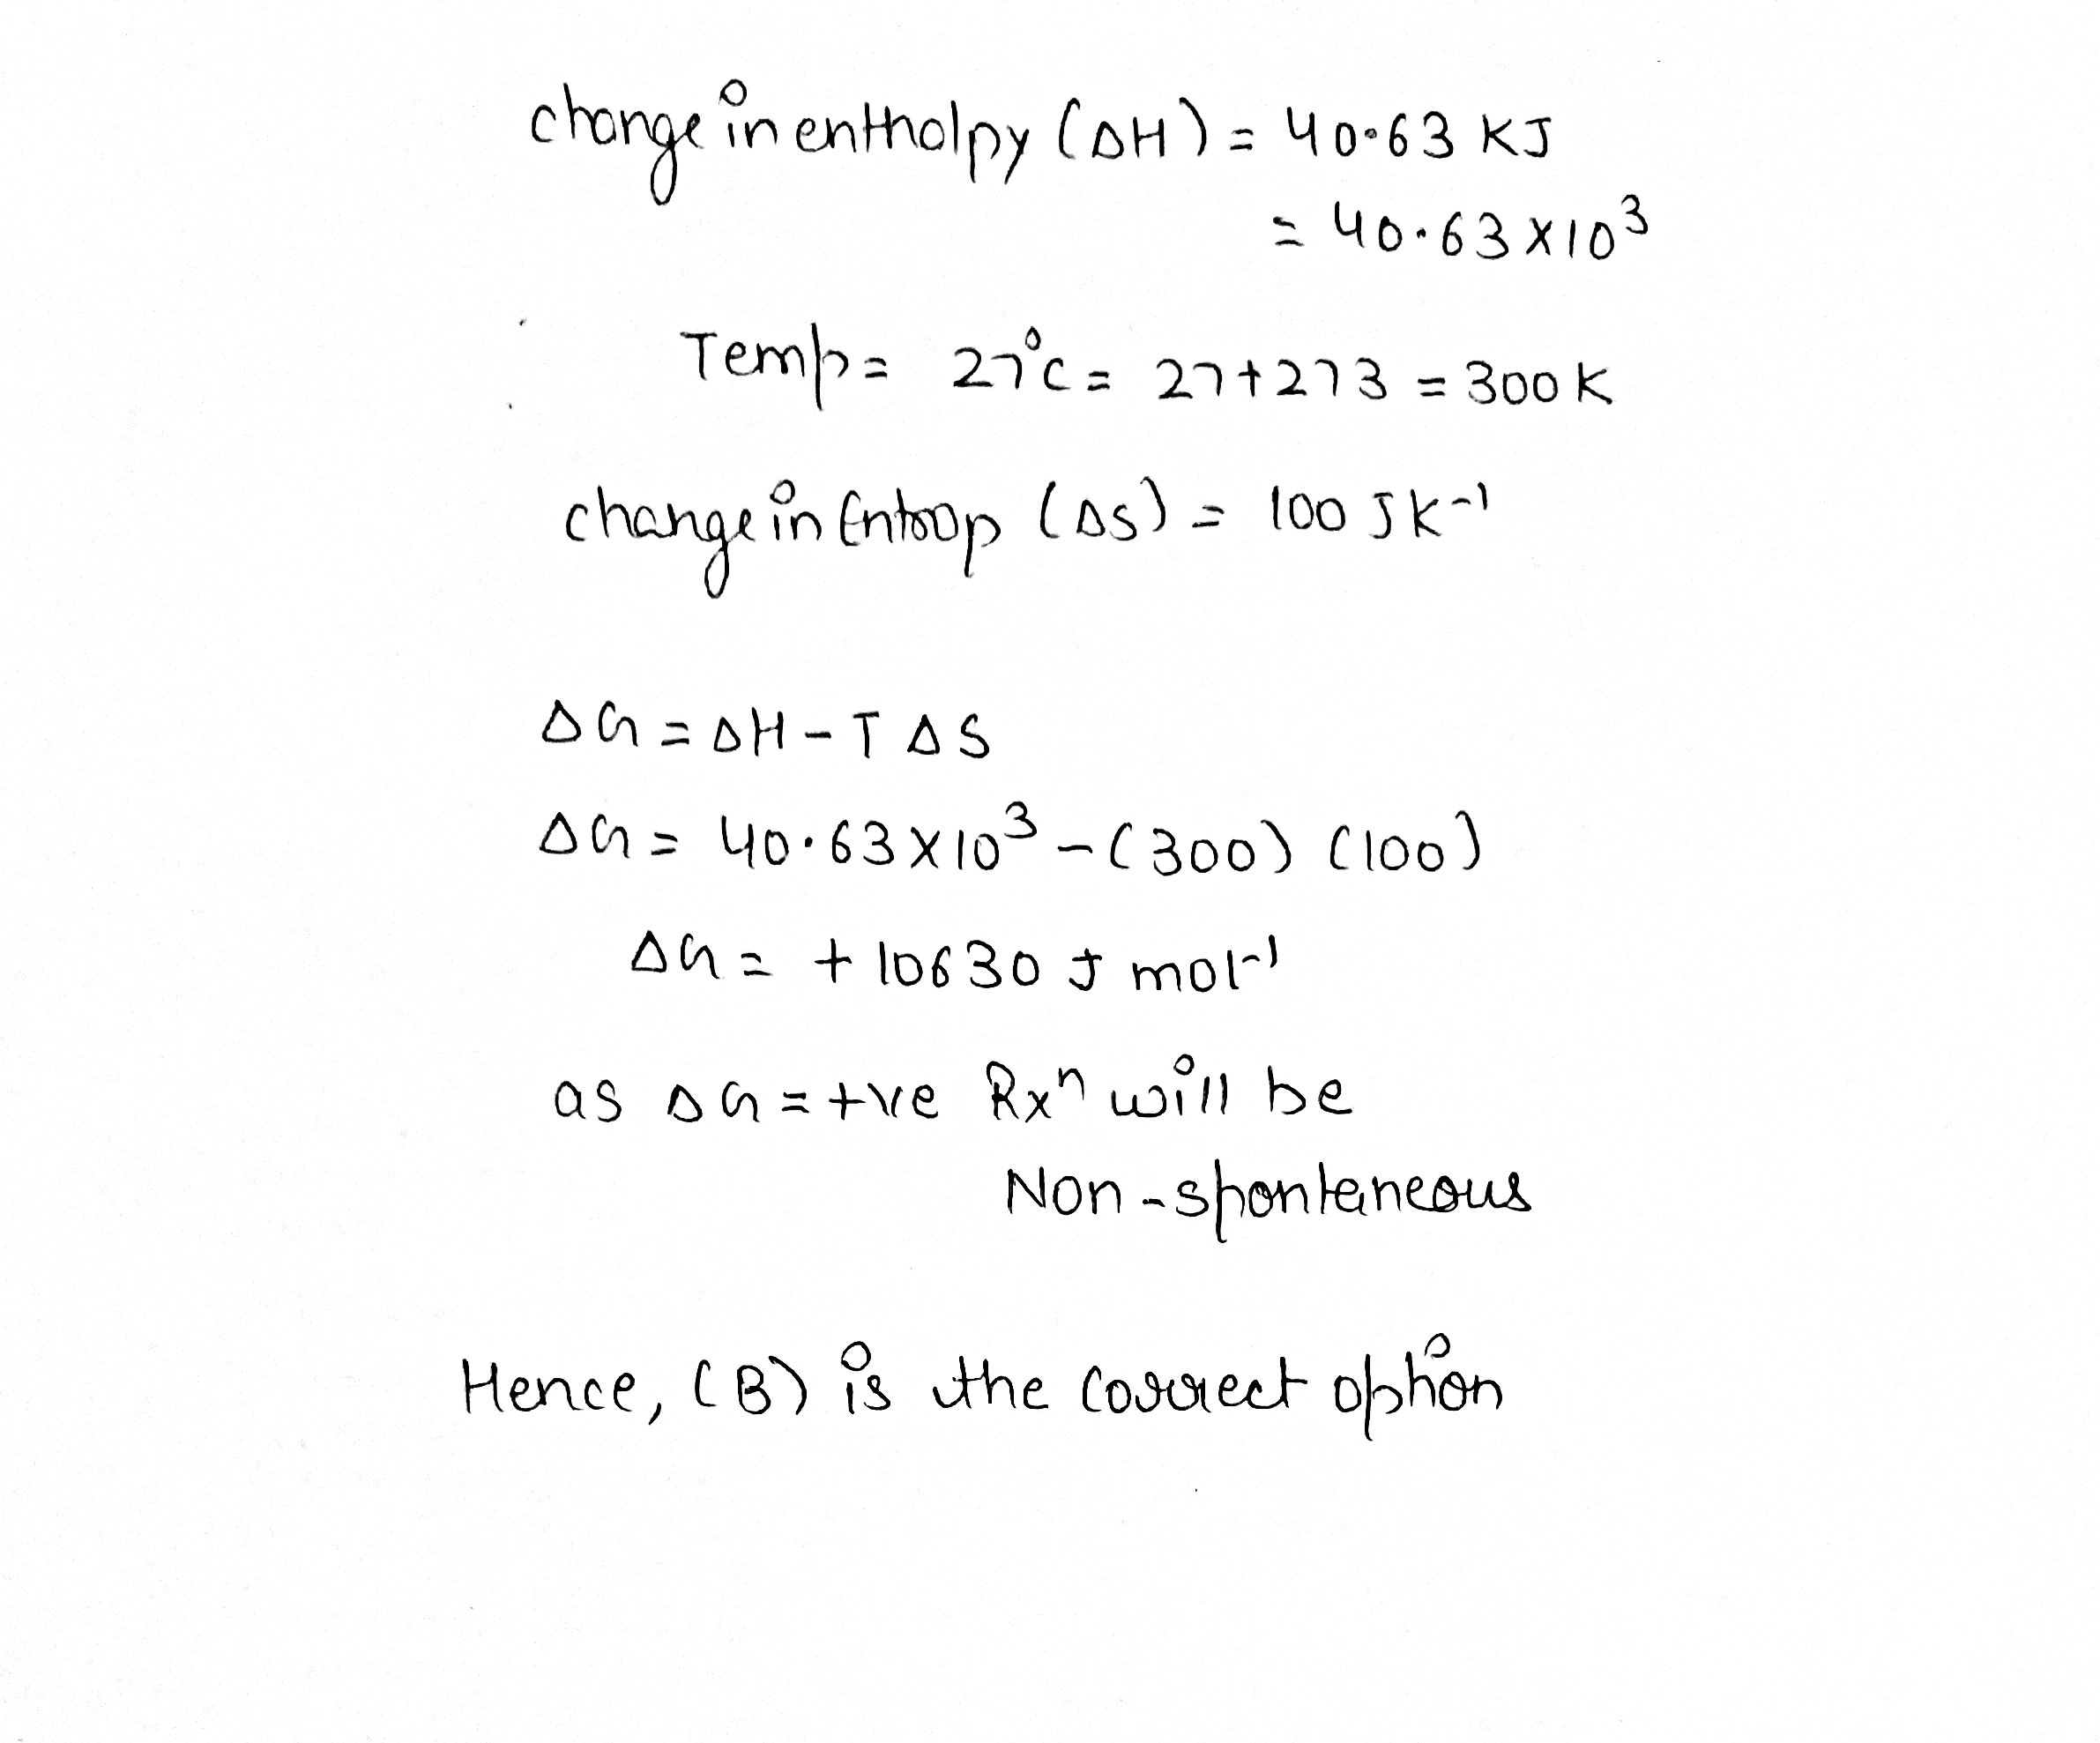 change in enthalpy (ΔH) = 40.63 KJ
= 40.63 x10³
Temp = 27°C = 27+273 = 300 K
change in Entrop (ΔS) = 100 JK⁻¹
ΔG = ΔH - T ΔS
ΔG = 40.63 x10³ - (300) (100)
ΔG = + 10630 J mol⁻¹
as ΔG = +ve Rxⁿ will be
Non-spontaneous
Hence, (B) is the correct option